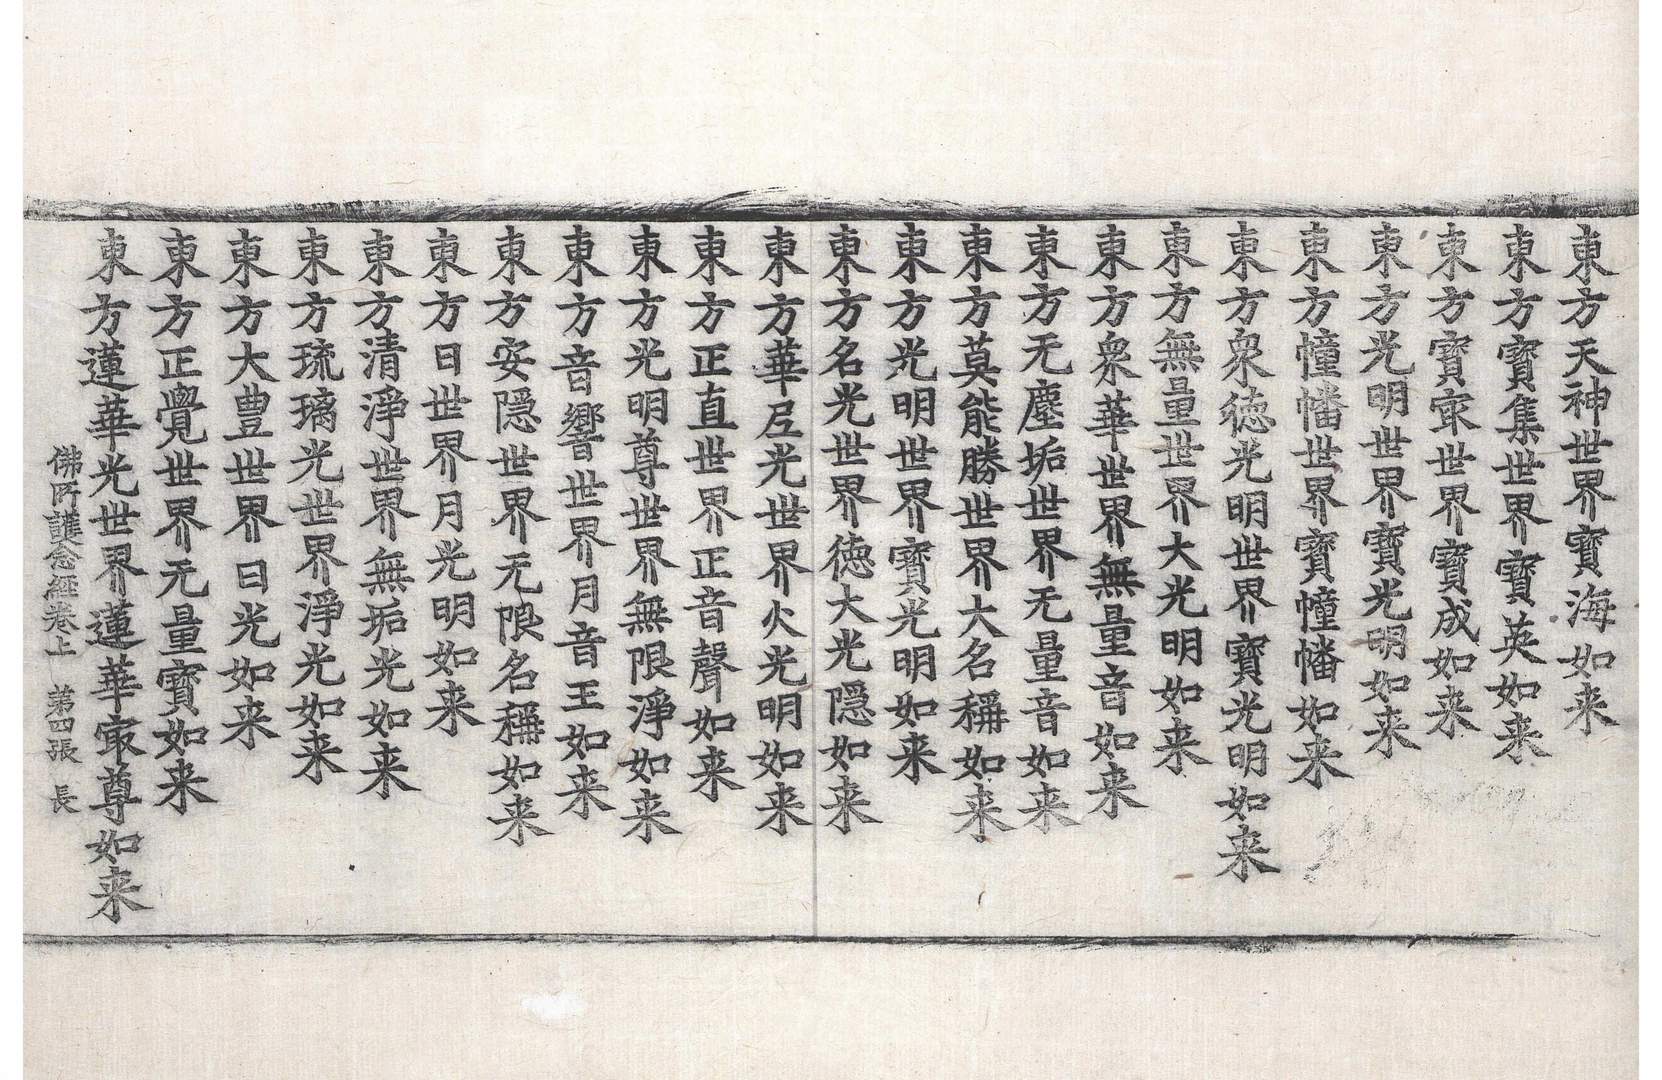 東方天神世界寶海如来
東方寶集世界寶英如来
東方寶㝡世界寶成如来
東方光明世界寶光明如来
東方幢幡世界寶幢幡如来
東方衆德光明世界寶光明如来
東方無量世界大光明如来
東方衆華世界無量音如来
東方无塵垢世界无量音如来
東方莫能勝世界大名稱如来
東方光明世界寶光明如来
東方名光世界德大光隱如来
東方華凥光世界火光明如来
東方正直世界正音聲如来
東方光明尊世界無限淨如来
東方音響世界月音王如来
東方安隱世界无限名稱如来
東方日世界月光明如来
東方清淨世界無垢光如来
東方琉璃光世界淨光如来
東方大豊世界日光如来
東方正覺世界无量寶如来
東方蓮華光世界蓮華㝡尊如来
佛所護念經卷上　第四張　長